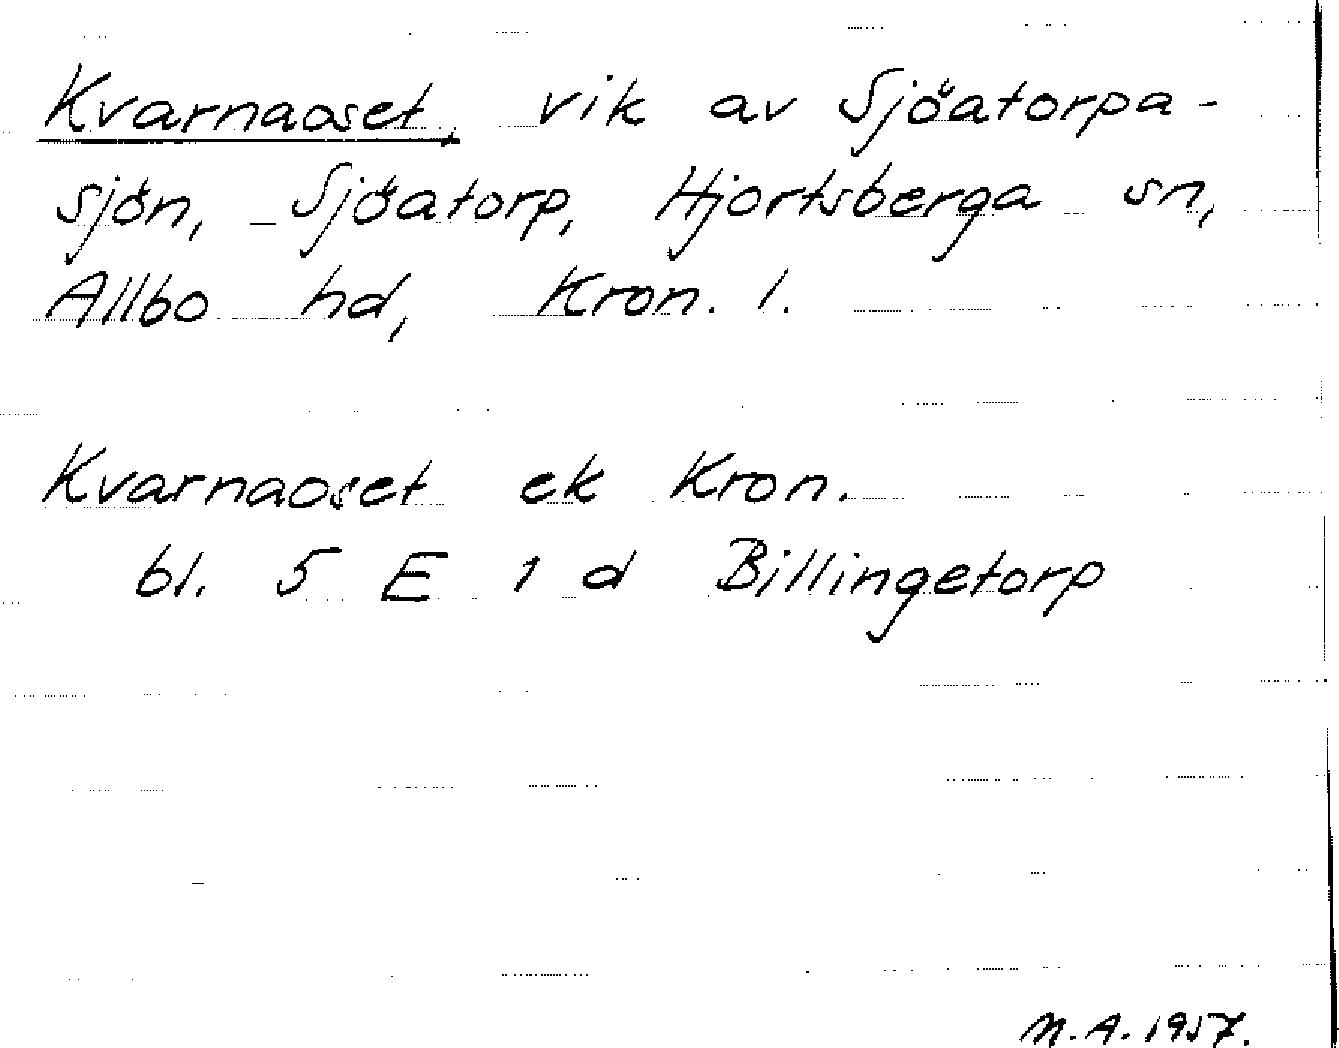 Kvarnaoset, vik av Sjöatorpa-
sjön, Sjöatorp, Hjortsberga sn,
Allbo hd, Kron. l.
Kvarnaoset ek Kron.
bl. 5 E 1 d Billingetorp
N.A. 1957.